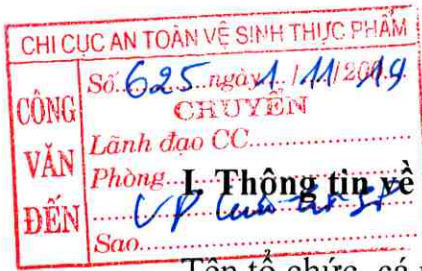 CHI CỤC AN TOÀN VỆ SINH THỰC PHẨM
CÔNG VĂN ĐẾN
Số 625 ngày 1 / 11 / 2019
CHUYỂN
Lãnh đạo CC
Phòng
I. Thông tin về
VP
Sao
Tên tổ chức, cá